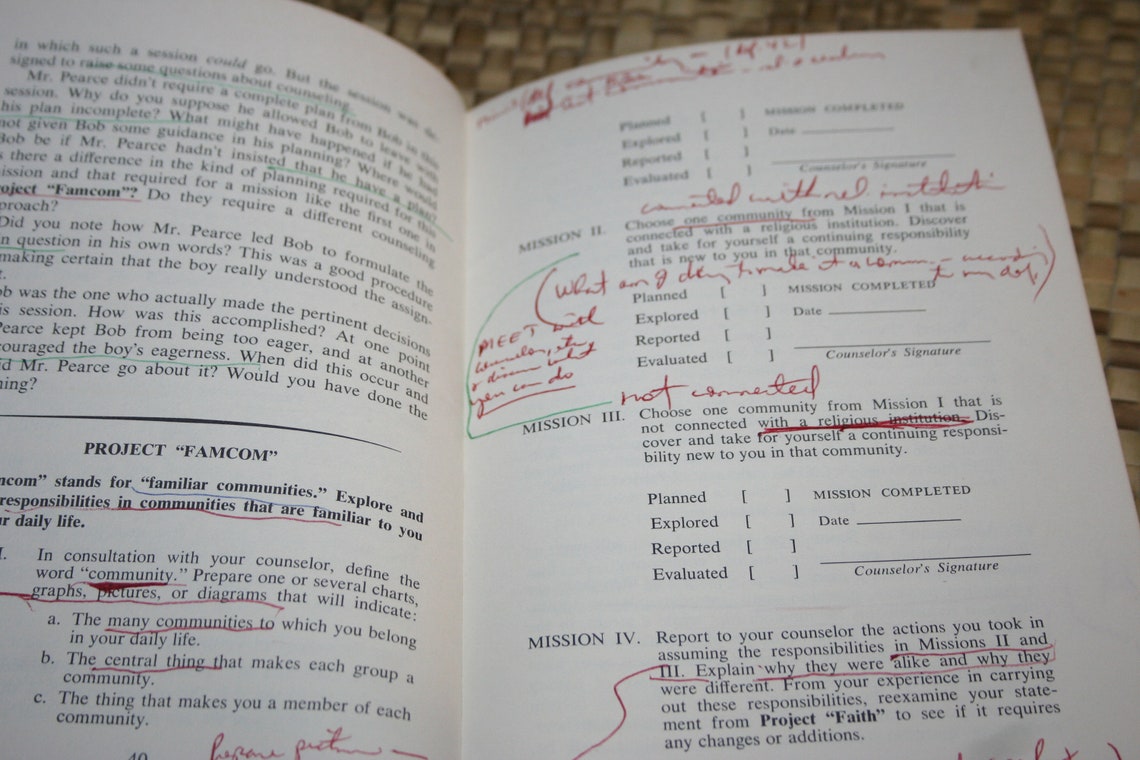 in which such a session could go. But the session was de-
signed to raise some questions about counseling.
Mr. Pearce didn't require a complete plan from Bob in this
session. Why do you suppose he allowed Bob to leave with
his plan incomplete? What might have happened if he had
not given Bob some guidance in his planning? Where would
Bob be if Mr. Pearce hadn't insisted that he have a plan?
s there a difference in the kind of planning required for this
ission and that required for a mission like the first one in
oject "Famcom"? Do they require a different counseling
proach?
Did you note how Mr. Pearce led Bob to formulate the
n question in his own words? This was a good procedure
making certain that the boy really understood the assign-
t.
ob was the one who actually made the pertinent decisions
is session. How was this accomplished? At one point
Pearce kept Bob from being too eager, and at another
couraged the boy's eagerness. When did this occur and
id Mr. Pearce go about it? Would you have done the
hing?
PROJECT "FAMCOM"
mcom" stands for "familiar communities." Explore and
responsibilities in communities that are familiar to you
ur daily life.
I. In consultation with your counselor, define the
word "community." Prepare one or several charts,
graphs, pictures, or diagrams that will indicate:
a. The many communities to which you belong
in your daily life.
b. The central thing that makes each group a
community.
c. The thing that makes you a member of each
community.
40
Planned [ ] MISSION COMPLETED
Explored [ ] Date
Reported [ ]
Evaluated [ ] Counselor's Signature
MISSION II. Choose one community from Mission I that is
connected with a religious institution. Discover
and take for yourself a continuing responsibility
that is new to you in that community.
Planned [ ] MISSION COMPLETED
Explored [ ] Date
Reported [ ]
Evaluated [ ] Counselor's Signature
MEET with
you can do
not connected
MISSION III. Choose one community from Mission I that is
not connected with a religious institution. Dis-
cover and take for yourself a continuing responsi-
bility new to you in that community.
Planned [ ] MISSION COMPLETED
Explored [ ] Date
Reported [ ]
Evaluated [ ] Counselor's Signature
MISSION IV. Report to your counselor the actions you took in
assuming the responsibilities in Missions II and
III. Explain why they were alike and why they
were different. From your experience in carrying
out these responsibilities, reexamine your state-
ment from Project "Faith" to see if it requires
any changes or additions.